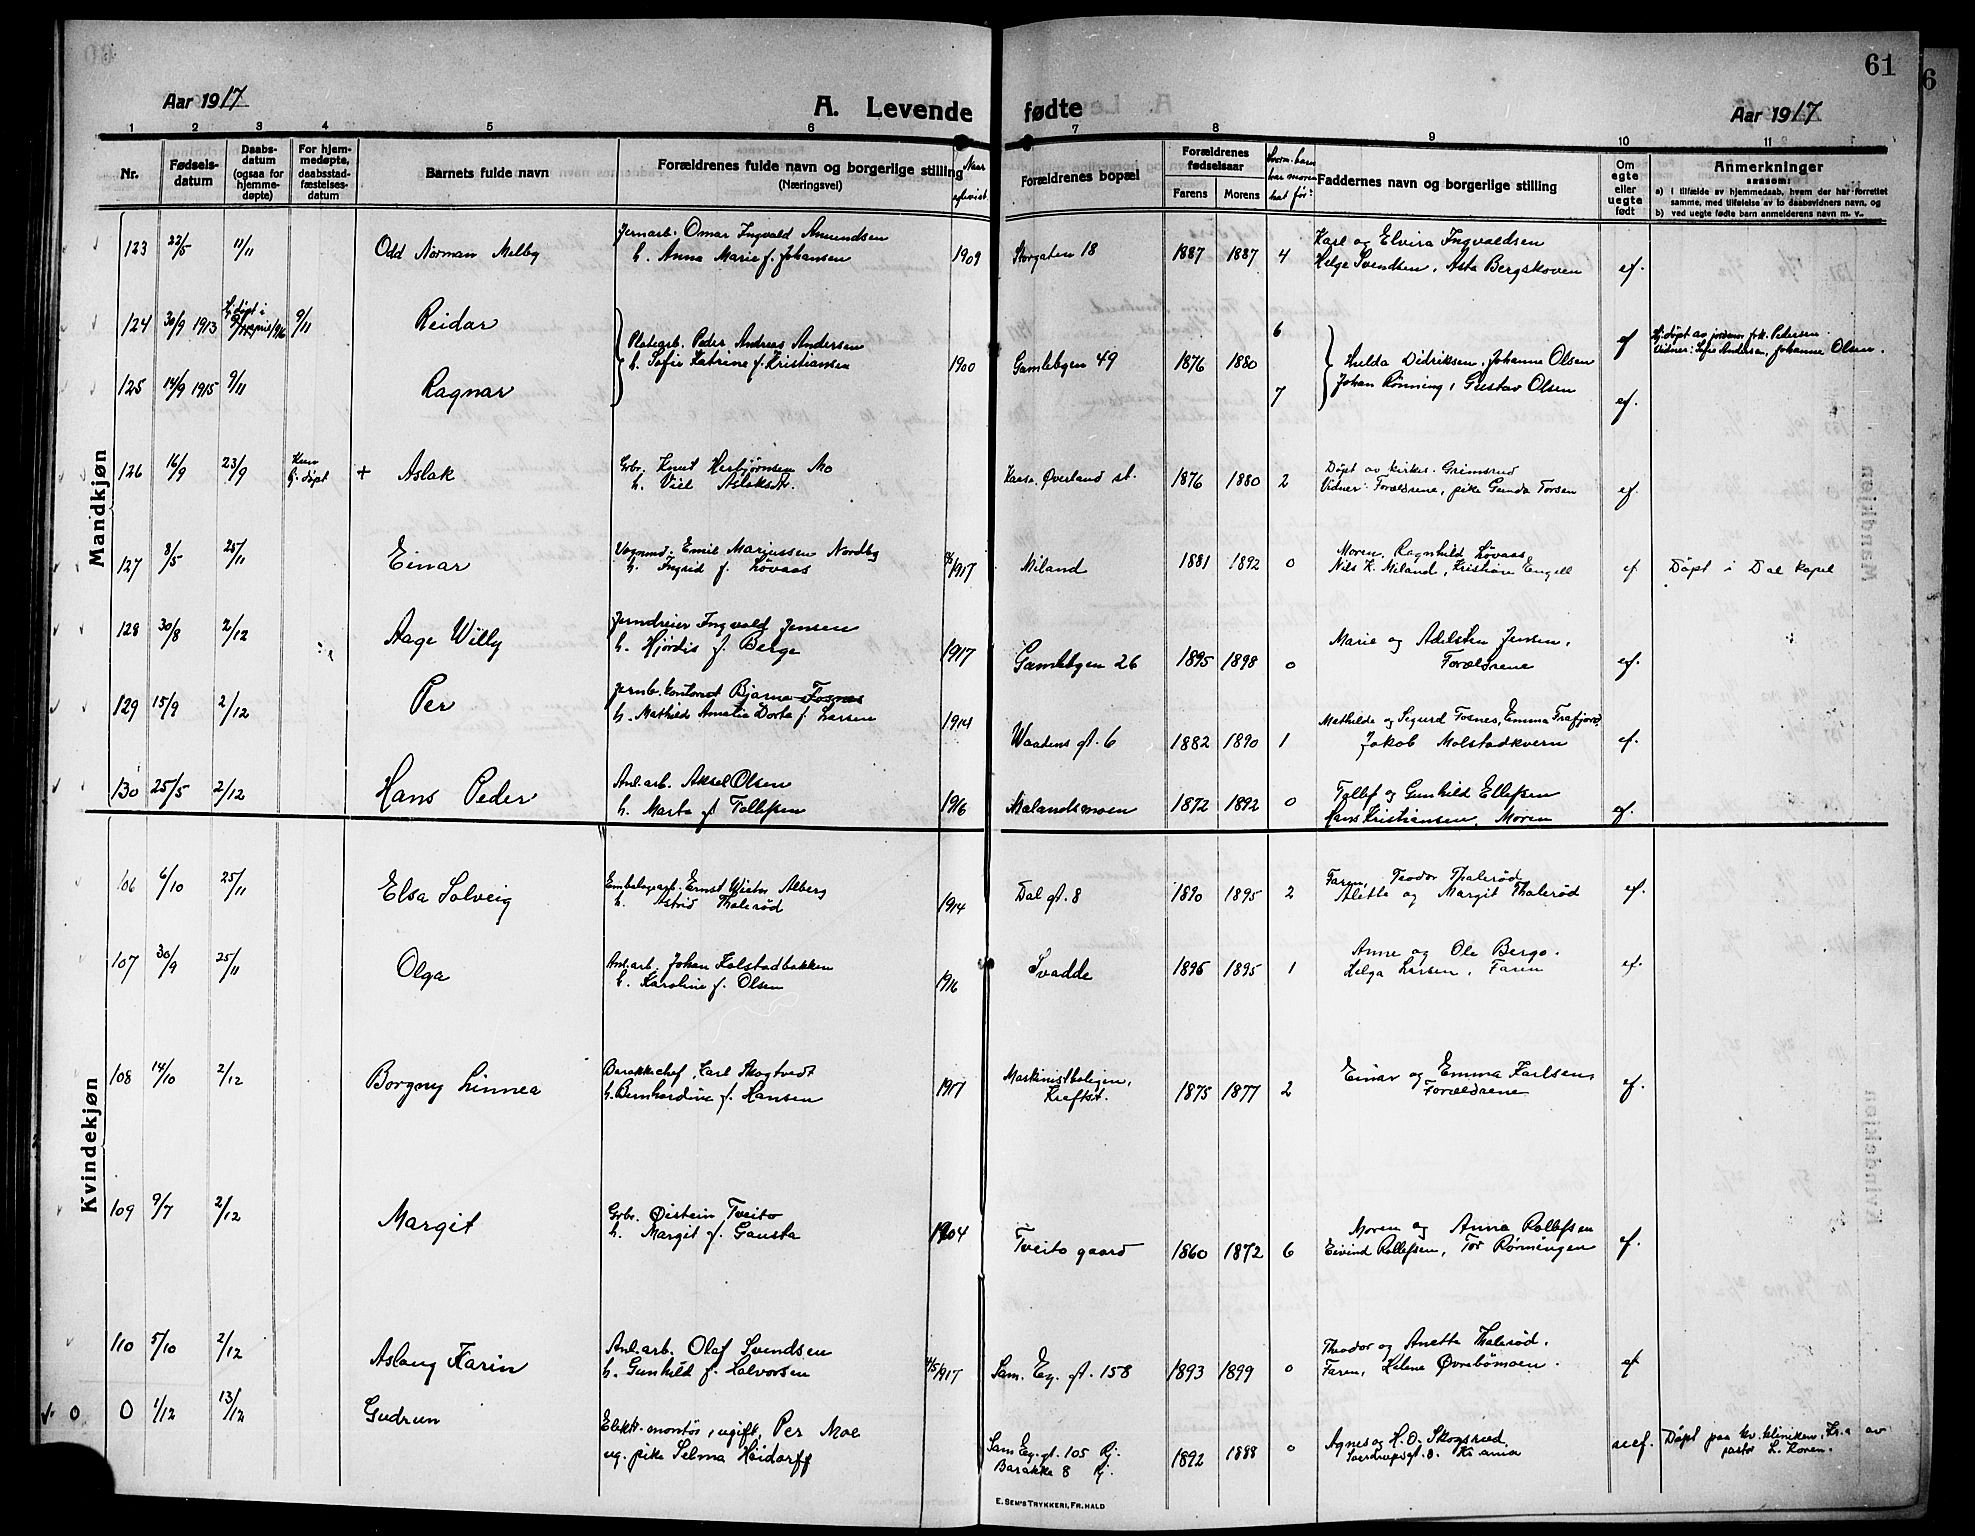 61
Aar 1917
A. Levende fødte
Aar 1917
1 2 3 4 5 6 7 8 9 10 11
Nr.
Fødsels-
datum
Daabs-
datum
(ogsaa for
hjemme-
døpte)
For hjem-
medøpte,
daabsstad-
fæstelses-
datum
Barnets fulde navn
Forældrenes fulde navn og borgerlige stilling
(Næringsvei)
Naar
Forældrenes bopæl
Forældrenes
fødselsaar
Farens Morens
Faddernes navn og borgerlige stilling
Om
egte
eller
uegte
født
Anmerkninger
saasom:
a) i tilfælde av hjemmedaab, hvem der har forrettet
samme, med tilføielse av to daabsvidners navn, og
b) ved uegte fødte barn anmelderens navn m. v.
Mandkjøn
123 22/5 11/11 Odd Norman Melby
Jernarb. Omar Ingvald Amundsen
h. Anna Marie f. Johansen 1909
Storgaten 18 1887 1887 4
Karl og Elvira Ingvaldsen
Helge Svendsen, Asta Bergskoven ef.
124 30/9 1913 9/11 Reidar
Platearb. Peder Andreas Andersen
h. Sofie Katrine f. Kristiansen 1900
Gamlebyen 49 1876 1880 6
Hulda Didriksen, Johanne Olsen
Johan Rønning, Gustav Olsen
ef
Hj. døpt av jordmor frk. Pedersen.
Vidner: Sofie Andersen, Johanne Olsen.
125 14/9 1915 9/11 Ragnar 7 ef.
126 16/9 23/9 Kun
hj. døpt + Aslak
Gbr. Knut Herbjørnsen Mo
Øverland st. 1876 1880 2
Døpt av kirkes. Grimsrud
Vidner: Forældrene, pike Gunda Torsen ef.
127 8/5 25/11 Einar
Emil Mariussen Nordby
h. Ingrid f. Løvaas 1917
Miland 1881 1892 0
Moren, Ragnhild Løvaas
Nils K. Miland, Kristian Engell ef Døpt i Dal kapel
128 30/8 2/12 Aage Willy
Jerndreier Ingvald Jensen
h. Hjørdis f. Berge 1917
Gamlebyen 26 1895 1898 0
Marie og Adelsten Jensen,
Forældrene ef.
129 15/9 2/12 Per
Jernb. kontorist Bjarne Fosnes
h. Mathilde Amalia Dorta f. Larsen 1914
Waadens gt. 6 1882 1890 1
Mathilde og Sigurd Fosnes, Emma Trafjord
Jakob Molstadkvern ef.
130 25/5 2/12 Hans Peder
Anl. arb. Aksel Olsen
h. Marta f. Tollefsen 1916
Mælandsmoen 1872 1892 0
Tollef og Gunhild Ellefsen
Hans Kristiansen, Moren ef.
Kvindekjøn
106 6/10 25/11 Elsa Solveig
Ernst Wiktor Alberg
h. Astrid Thalerød 1914
Dal gt. 8 1890 1895 2
Faren, Teodor Thalerød
Alette og Margit Thalerød ef.
107 30/9 25/11 Olga
Anl. arb. Johan Kolstadbakken
h. Karoline f. Olsen 1916
Svadde 1896 1895 1
Anne og Ole Bergo.
Helga Larsen, Faren ef.
108 14/10 2/12 Borgny Linnea
Barakkechef, Karl Skogtvedt
h. Bernhardine f. Hansen 1917
Maskinistboligen,
Kraftst. 1875 1877 2
Einar og Emma Karlsen,
Forældrene ef.
109 9/7 2/12 Margit
Gbr. Øistein Tveito
h. Margit f. Gausta 1904
Tveito gaard 1860 1872 6
Moren og Anna Rollefsen
Eivind Rollefsen, Tor Rønningen ef.
110 5/10 2/12 Aslaug Karin
Anl. arb. Olaf Svendsen
h. Gunhild f. Halvorsen 4/5 1917
Sam. Ey. gt. 158 1893 1899 0
Theodor og Anetta Thalerød.
Faren, Helene Øvrebømoen. ef
0 0 1/12 13/12 Gudrun
Elektr. montør, ugift, Per Moe
ug. pike Selma Heidorff
Sam Ey. gt. 105 Rj.
Barakke 8 Rj. 1892 1888 0
Agnes og H. O. Skogsrud
Sverdrupsgt. Kr ania
uef.
Døpt paa kv. kliniken, Kr.a av
pastor L. Koren.
E. SEM'S TRYKKERI, FR.HALD